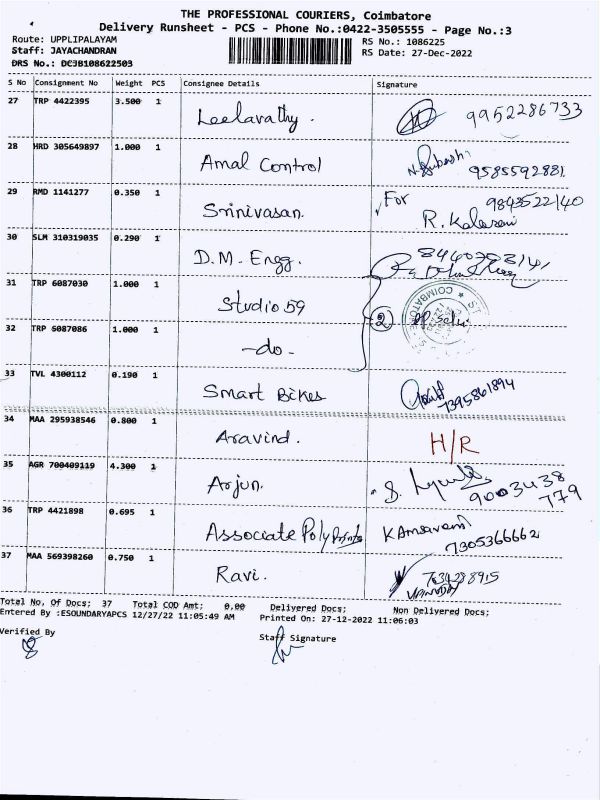 THE PROFESSIONAL COURIERS, Coimbatore
Delivery Runsheet - PCS - Phone No.:0422-3505555 - Page No.:3
Route: UPPLIPALAYAM RS No.: 1086225
Staff: JAYACHANDRAN RS Date: 27-Dec-2022
DRS No.: DC3B108622503
S No Consignment No Weight PCS Consignee Details Signature
27 TRP 4422395 3.500 1 Leelavathy. 9952286733
28 HRD 305649897 1.000 1 Amal Control 9585592881
29 RMD 1141277 0.350 1 Srinivasan. For 9843522140
R. Kalarani
30 SLM 310319035 0.290 1 D.M. Engg.
31 TRP 6087030 1.000 1 Studio 59 COIMBATORE
32 TRP 6087086 1.000 1 -do- 2
33 TVL 4300112 0.190 1 Smart Bikes 7395861894
34 MAA 295938546 0.800 1 Aravind. H/R
35 AGR 700409119 4.300 1 Arjun. 9003438
779
36 TRP 4421898 0.695 1 Associate Poly Prints
7305366662
37 MAA 569398260 0.750 1 Ravi.
Total No. Of Docs; 37 Total COD Amt; 0.00 Delivered Docs; Non Delivered Docs;
Entered By :ESOUNDARYAPCS 12/27/22 11:05:49 AM Printed On: 27-12-2022 11:06:03
Verified By Staff Signature